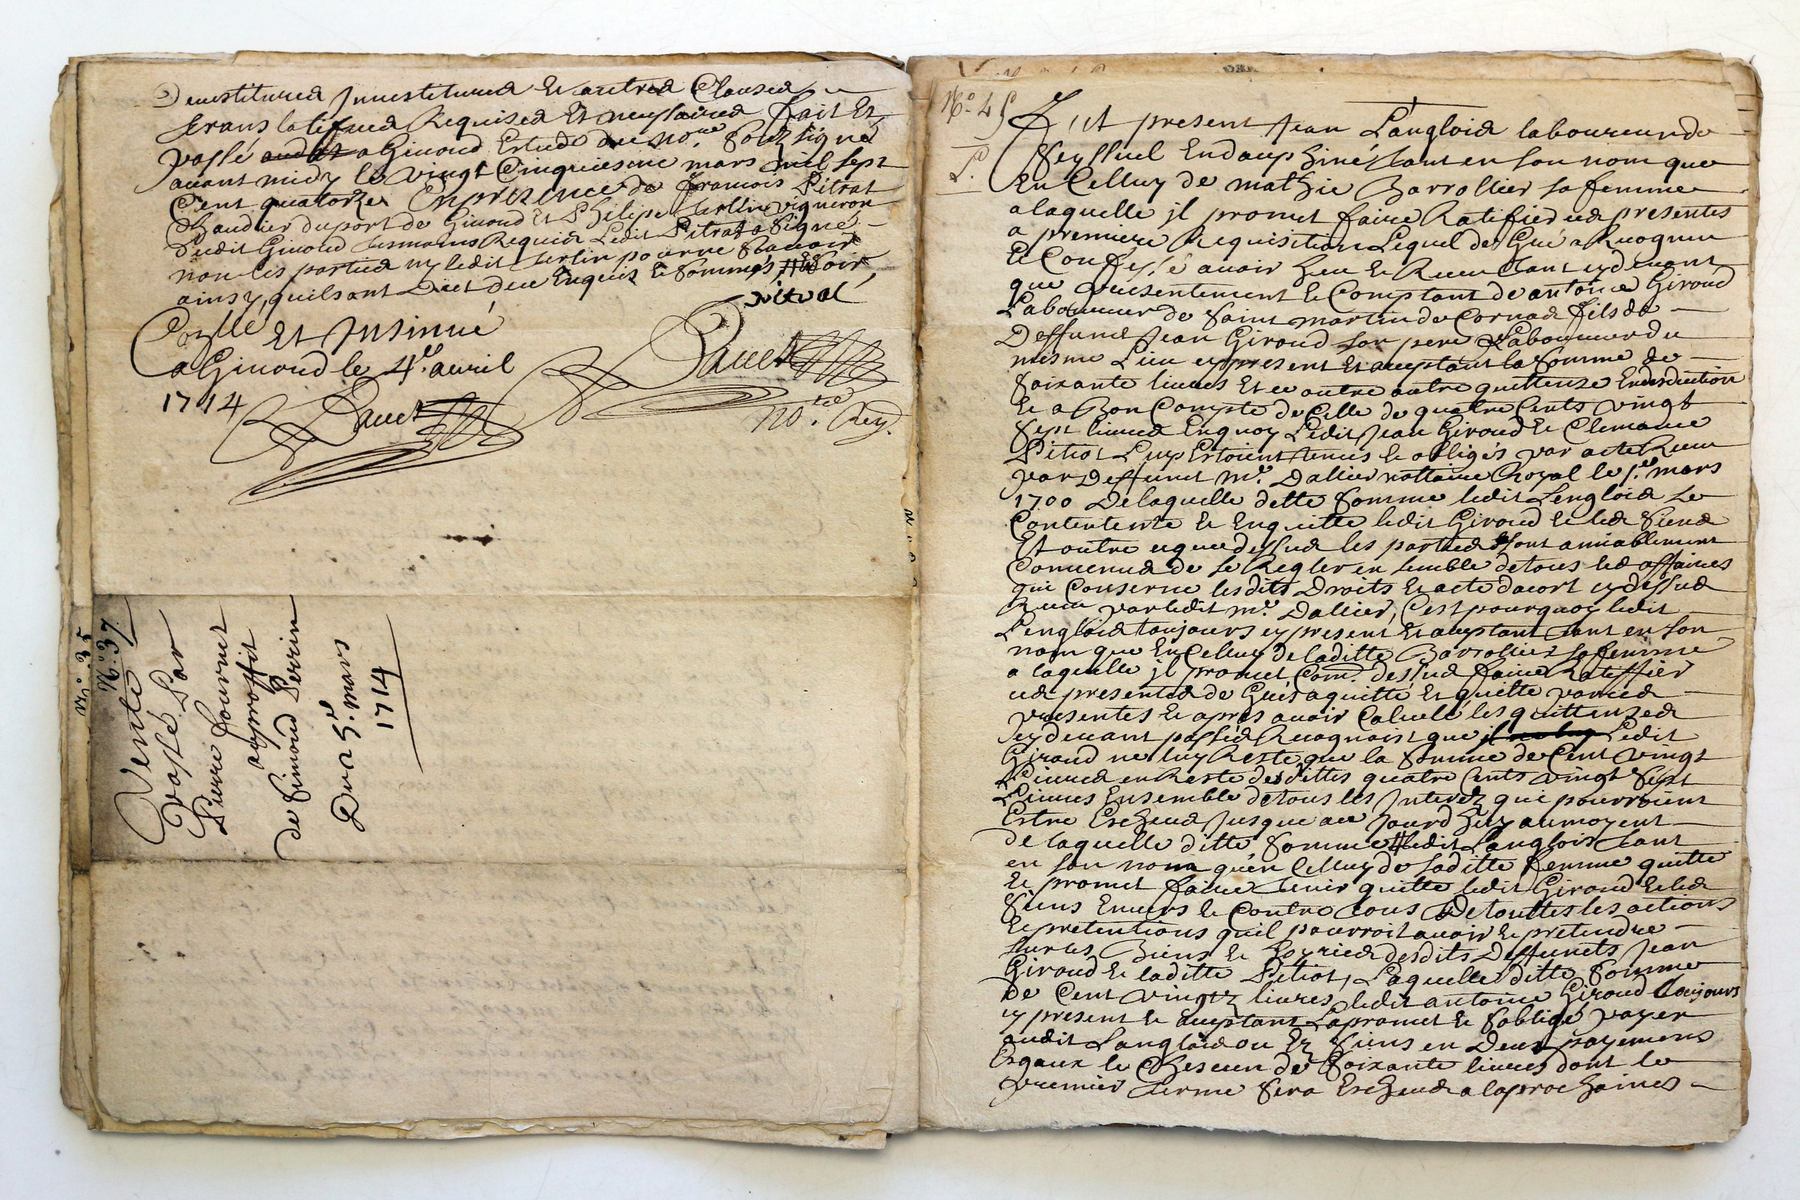 Devestitures Investitures et autres Clauses
translatifves Requises Et nessaires fait Et
passé a Givord Estude du no.re soubzsigné
avant midy le vingt Cinquiesme mars mil sept
Cent quatorze En presence de francois Pitrat
Chaudier du port de Givord Et Philipe vigneron
dudit Givord tesmoins Requis Ledit Pitrat a Signé
non les parties ny ledit pour ne scavoir
ainsy quils ont Dict deue Enquis et sommés
Pitrat
Collé Et Insinué
a Givord le 4.e avril
1714
no.re Roy.
N.o 35
N.o 37
Vente
passé par
Pierre fournet
au proffit
de Simond Perrin
Du 25.e mars
1714
N.o 45
L.
fut present Jean Langlois laboureur de
Seyssuel En dauphiné tant en son nom que
En Celluy de mathie Barrollier sa femme
a laquelle il promet faire Ratiffier ces presentes
a premiere Requisition Lequel de Gré a Recognu
Et Confessé avoir heu et Receu tant cy devant
que presentement et Comptant de antoine Giroud
Laboureur de saint martin de Cornas fils de
Deffunct Jean Giroud son pere Laboureur du
mesme Lieu cy present Et aceptant la somme de
soixante livres Et ce outre autre quittense En deduction
et a Bon Compte de Celle de quatre Cents vingt
sept livres En quoy Ledit Jean Giroud et Clemance
Pitiot Luy Estoient tenus et obligés par acte Receu
par deffunct m.e Dallier nottaire Royal le 1.er mars
1700 De laquelle ditte somme ledit Langlois se
Contentente et Enquitte ledit Giroud et les siens
Et outre ce que dessus les parties sont amiablement
Convenues de se Regler en semble de tous les affaires
qui Conserne lesdits Droits et acte dacort cy dessus
Receu par ledit m.e Dallier, C'est pourquoy ledit
Langlois toujours cy present Et aceptant tant en son
nom que En Celluy de laditte Barrollier sa femme
a laquelle il promet Com.e dessus faire Ratiffier
ces presentes de Gré a quitté Et quitte par ces
presentes et apres avoir Calculé les quittenses
cy devant passés Recognoist que ledit
Giroud ne luy Reste que la somme de Cent vingt
Livres en Reste desdittes quatre Cents vingt sept
Livres Ensemble de tous les Interetz qui pourroient
Estre Escheus Jusque au Jourdhuy au moyent
de laquelle ditte somme ledit Langlois tant
en son nom qu'en Celluy de saditte femme quitte
Et promet faire tenir quitte ledit Giroud et les
siens Envers et Contre tous De touttes les actions
Et pretentions qu'il pourroit avoir et pretendre
sur les Biens et hoyries desdits Deffuncts Jean
Giroud et laditte Pitiot, Laquelle ditte somme
de Cent vingtz livres ledit antoine Giroud toujours
cy present et aceptant La promet et soblige payer
audit Langlois ou Ez siens en Deux payements
Esgaux le Chescun de soixante livres dont le
premier terme sera Escheus a la prochaine